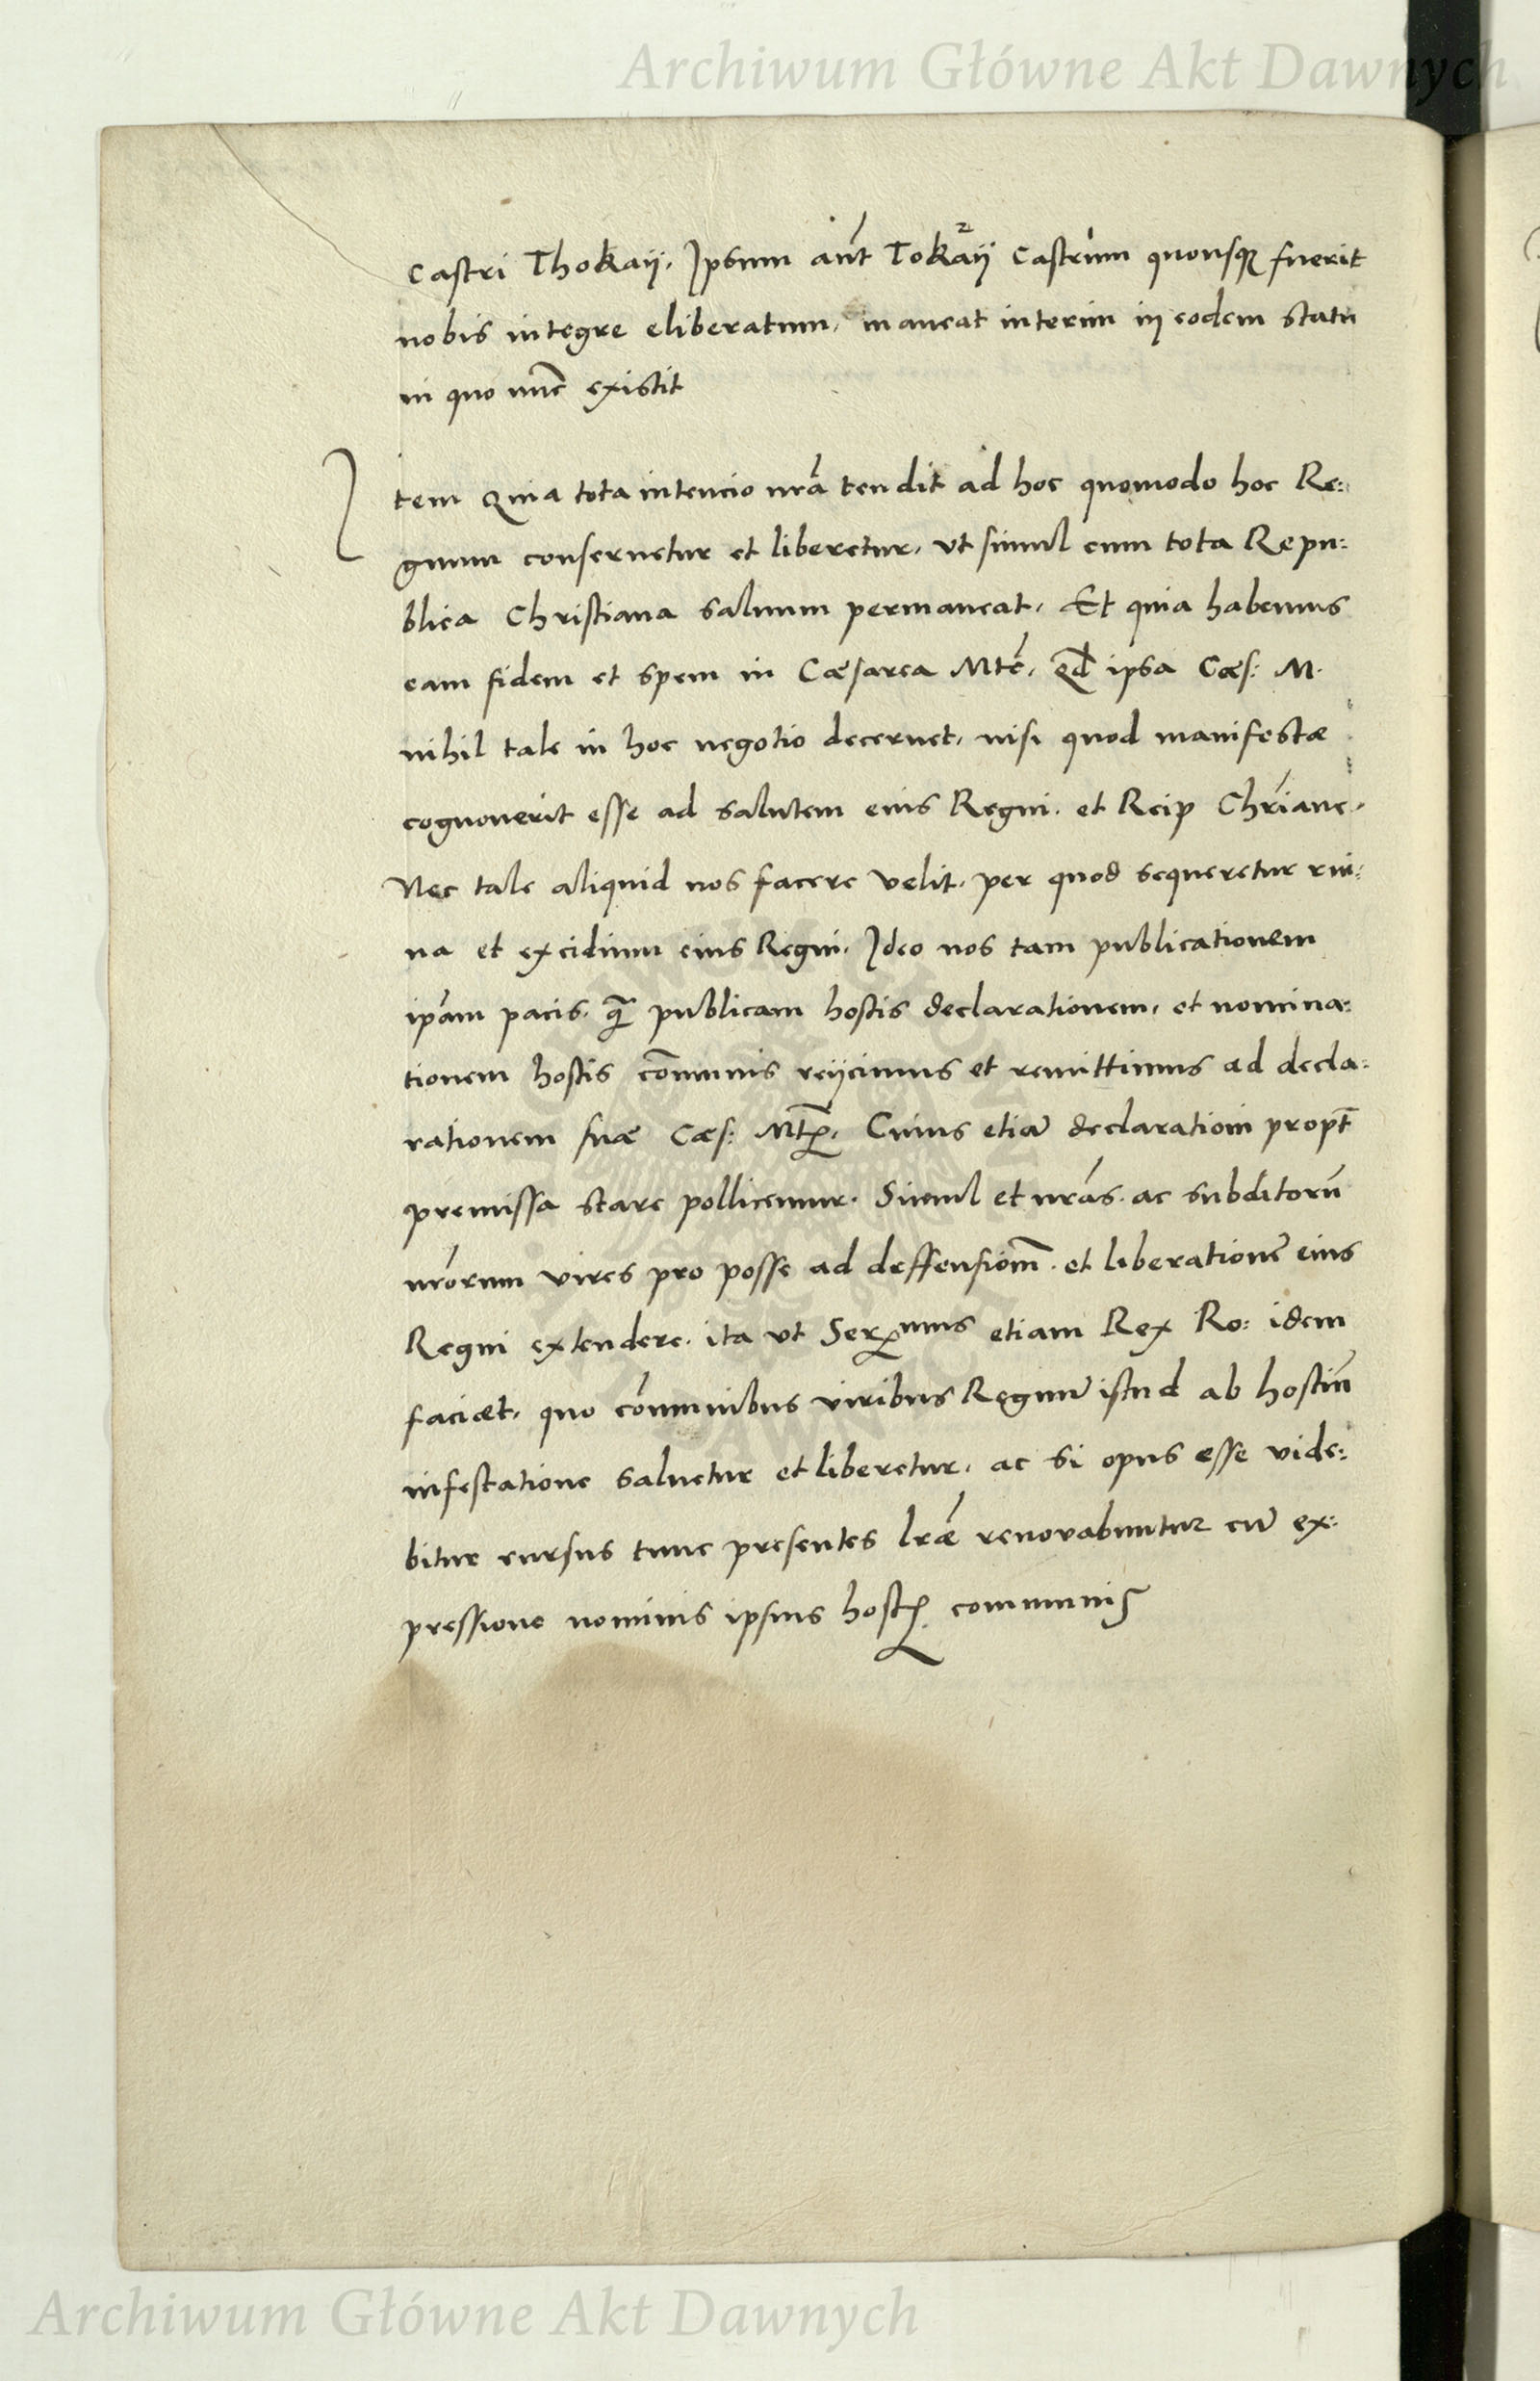 Archiwum Główne Akt Dawnych
Castri Thokaÿ. Ipsum aũt Tokaÿ Castrum quousq̃ fuerit
nobis integre eliberatum, maneat interim in eodem statu
in quo nũc existit
Item Quia tota intencio nrã tendit ad hoc quomodo hoc Re:
gnum conseruetur et liberetur, vt simul cum tota Repu:
blica Christiana saluum permaneat, Et quia habemus
eam fidem et spem in Cæsarea Mtẽ, qđ ipsa Cæs: M.
nihil tale in hoc negotio decernet, nisi quod manifestæ
cognouerit esse ad salutem eius Regni, et Reip Chrĩane,
Nec tale aliquid nos facere velit, per quod sequeretur rui:
na et excidium eius Regni, Ideo nos tam publicationem
ipãm pacis, q̃ publicam hostis declarationem, et nomina:
tionem hostis cõmunis reijcimus et remittimus ad decla:
rationem suæ Cæs: Mtꝭ, Cuius etiã declarationi propt̃
premissa stare pollicemur. Simul et nrãs ac subditorũ
nrõrum vires pro posse ad deffensiom̃ et liberationẽ eius
Regni extendere, ita vt Serᵐᵘˢ etiam Rex Ro: idem
faciæt, quo cõmunibus viribus Regnũ istud ab hostiũ
infestatione saluetur et liberetur, ac si opus esse vide:
bitur rursus tunc presentes lræ̃ renovabuntur cũ ex:
pressione nominis ipsius hostꝭ communis
Archiwum Główne Akt Dawnych